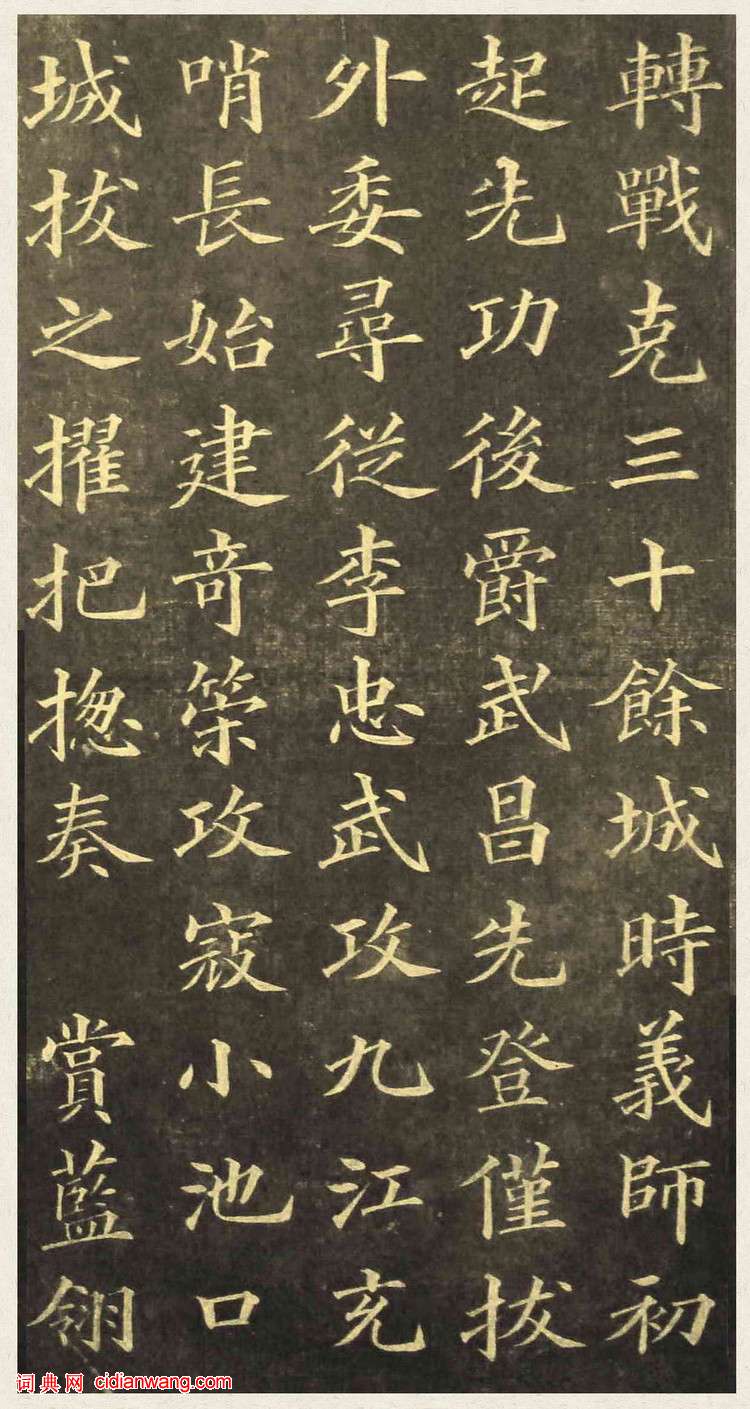 轉戰克三十餘城時義師初
起先功後爵武昌先登僅拔
外委尋從李忠武攻九江充
哨長始建奇策攻寇小池口
城拔之擢把揔奏 賞藍翎
词典网 cidianwang.com